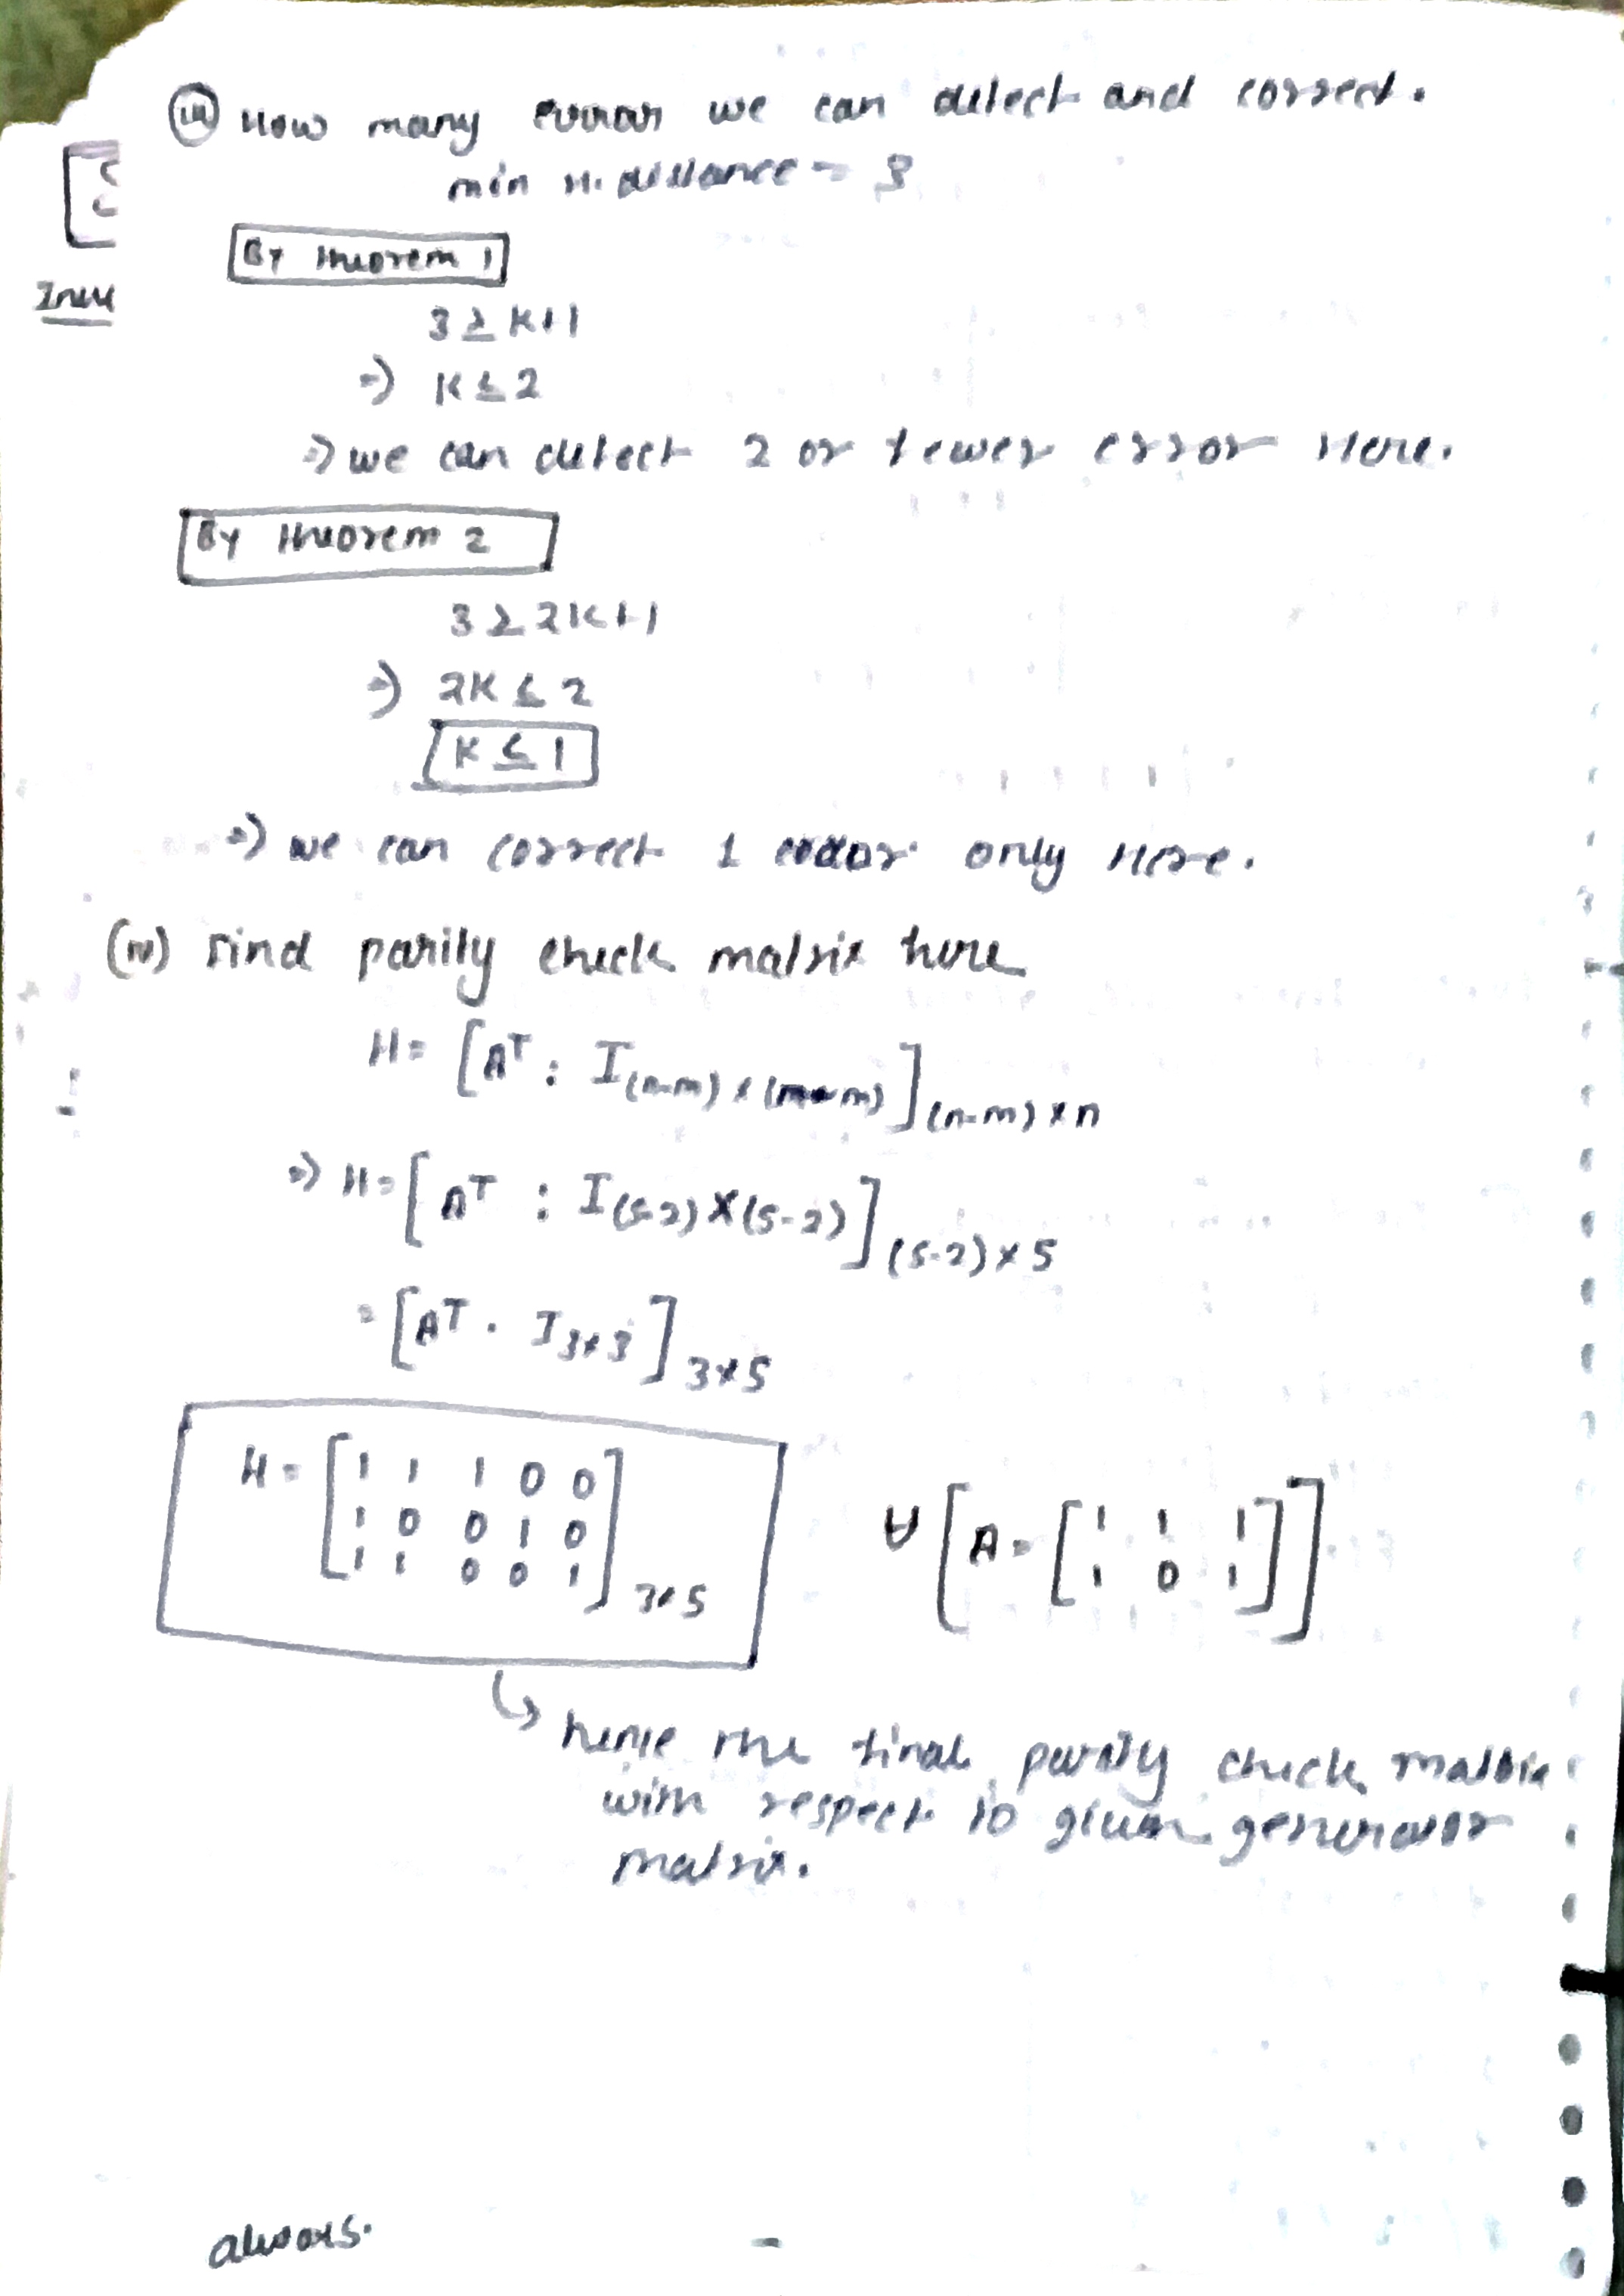 (iii) How many errors we can detect and correct.
min H. distance = 3
By theorem 1
3 ≥ K+1
⇒ K ≤ 2
⇒ we can detect 2 or fewer error Here.
By theorem 2
3 ≥ 2K+1
⇒ 2K ≤ 2
K ≤ 1
⇒ we can correct 1 error only Here.
(iv) Find parity check matrix here
H = [A^T : I(n-m) x (n-m)](n-m) x n
⇒ H = [A^T : I(5-2) X (5-2)](5-2) x 5
= [A^T . I 3x3] 3x5
H = [1 1 1 0 0
1 0 0 1 0
1 1 0 0 1] 3x5
∀ [A = [1 1 1
1 0 1]]
↳ hence the final parity check matrix
with respect to given generator
matrix.